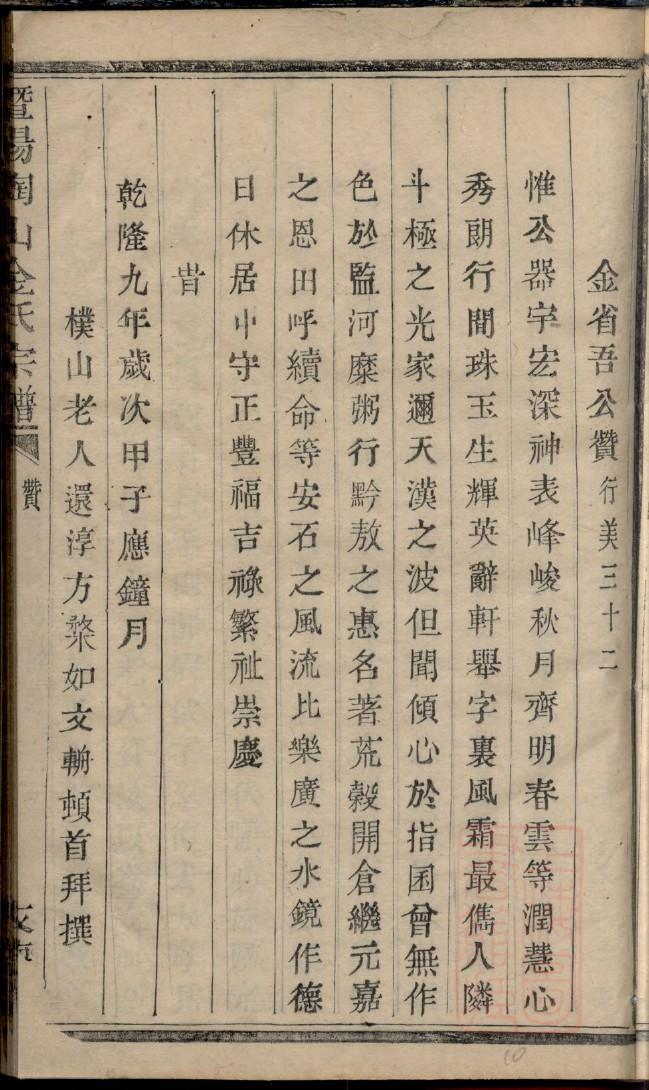 金省吾公贊行美三十二
惟公器宇宏深神表峰峻秋月齊明春雲等潤慧心
秀朗行間珠玉生輝英辭軒舉字裏風霜最儁人隣
斗極之光家邇天漢之波但聞傾心於指囷曾無作
色於監河糜粥行黔敖之惠名著荒穀開倉繼元嘉
之恩田呼續命等安石之風流比樂廣之水鏡作德
日休居中守正豐福吉祿繁祉崇慶
旹
乾隆九年歲次甲子應鐘月
樸山老人還淳方楘如文輈頓首拜撰
暨陽陶山金氏宗譜 贊